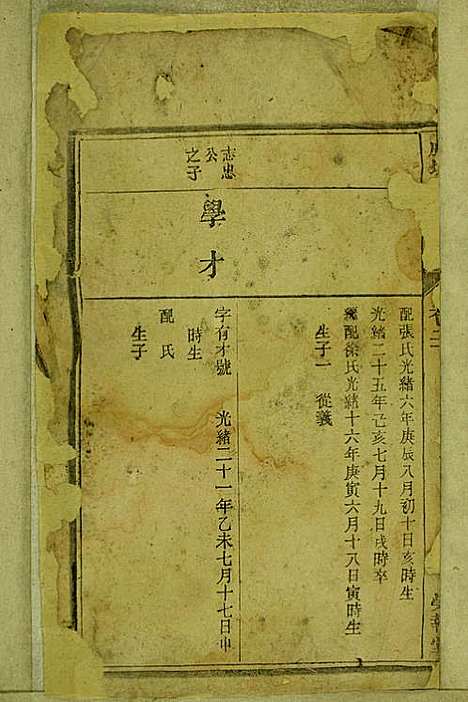 配張氏光緒六年庚辰八月初十日亥時生
光緒二十五年己亥七月十九日戌時卒
繼配徐氏光緒十六年庚寅六月十八日寅時生
生子一 從義
志忠
公
之子
學才
字有才號 光緒二十一年乙未七月十七日申
時生
配 氏
生子
卷二